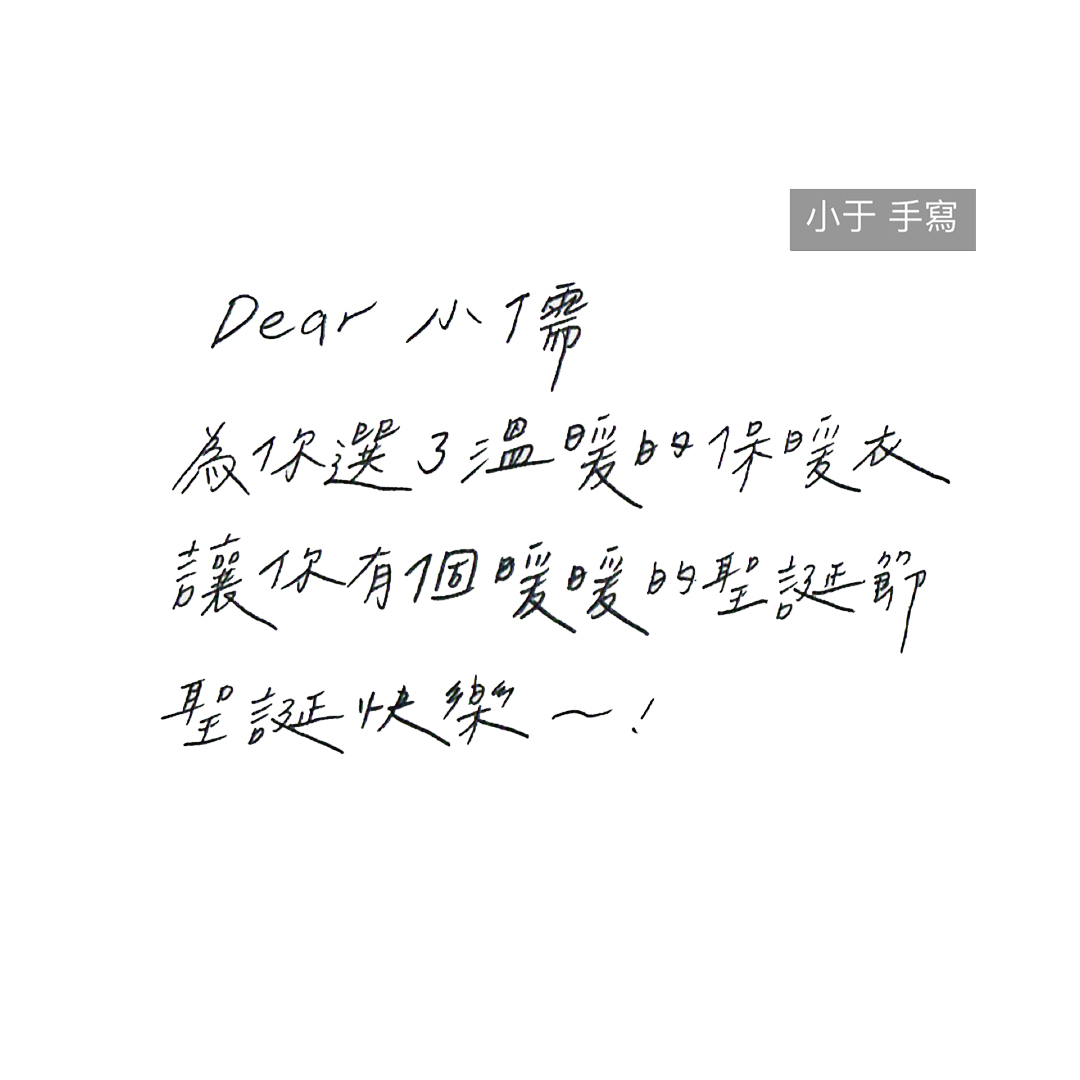 小于 手寫
Dear 小儒
為你選了溫暖的保暖衣
讓你有個暖暖的聖誕節
聖誕快樂～！